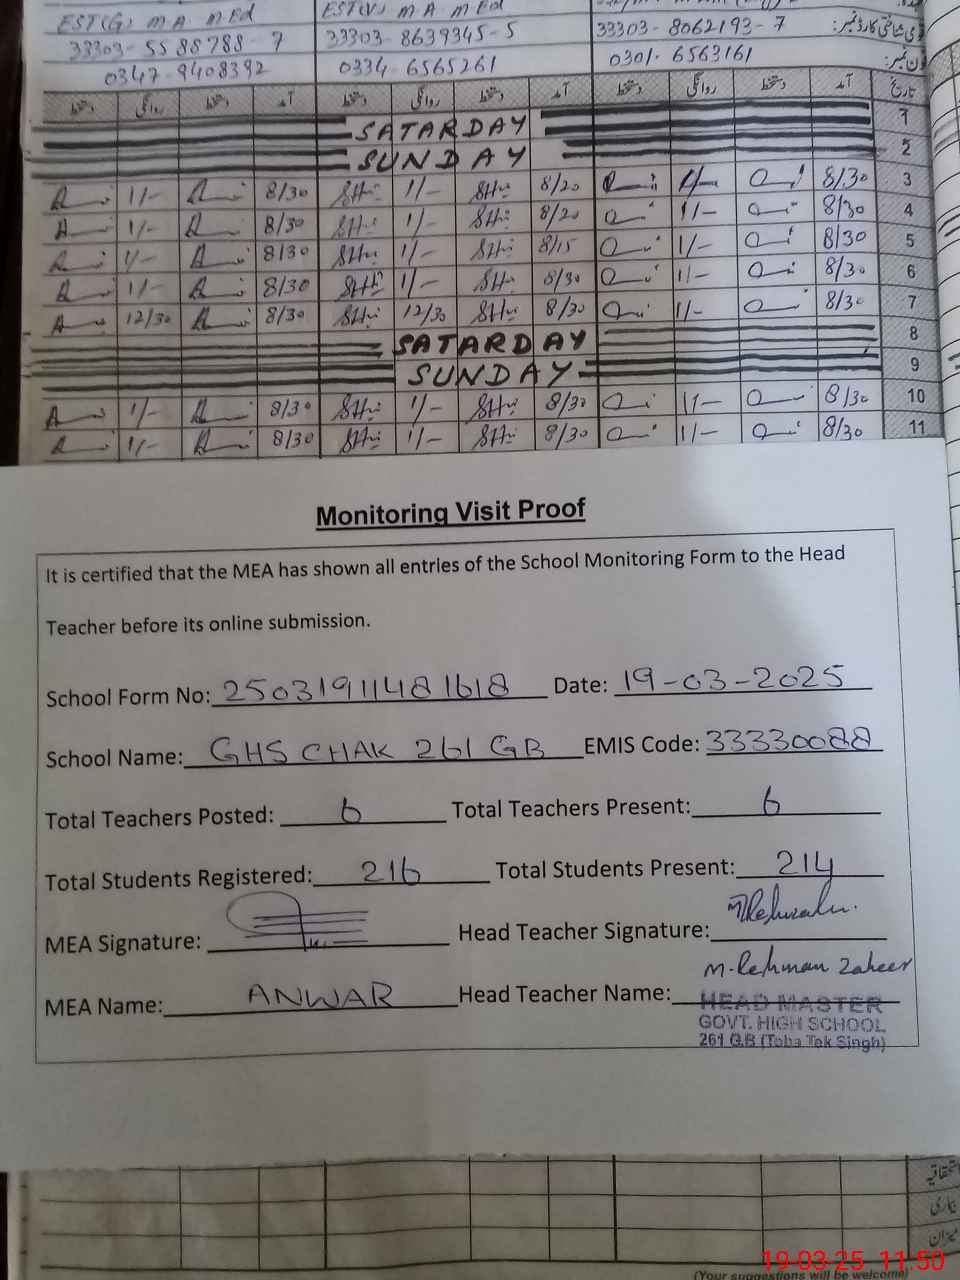 EST(G) M A M Ed EST(V) M A M Ed
33303-5588788-7 33303-8639345-5 33303-8062193-7
0347-9408392 0334-6565261 0301-6563161
دستخط روانگی دستخط آمد دستخط روانگی دستخط آمد دستخط روانگی دستخط آمد تاریخ
SATARDAY 1
SUNDAY 2
1/- 8/30 1/- 8/20 1/- 8/30 3
1/- 8/30 1/- 8/20 1/- 8/30 4
1/- 8/30 1/- 8/15 1/- 8/30 5
1/- 8/30 1/- 8/30 1/- 8/30 6
12/30 8/30 12/30 8/30 1/- 8/30 7
SATARDAY 8
SUNDAY 9
1/- 8/30 1/- 8/30 1/- 8/30 10
1/- 8/30 1/- 8/30 1/- 8/30 11
Monitoring Visit Proof
It is certified that the MEA has shown all entries of the School Monitoring Form to the Head
Teacher before its online submission.
School Form No: 25031911481618 Date: 19-03-2025
School Name: GHS CHAK 261 GB EMIS Code: 33330088
Total Teachers Posted: 6 Total Teachers Present: 6
Total Students Registered: 216 Total Students Present: 214
MEA Signature: Head Teacher Signature:
M. Rehman Zaheer
MEA Name: ANWAR Head Teacher Name:
HEAD MASTER
GOVT. HIGH SCHOOL
261 G.B (Toba Tek Singh)
میزان
19-03-25 11:50
(Your suggestions will be welcome)